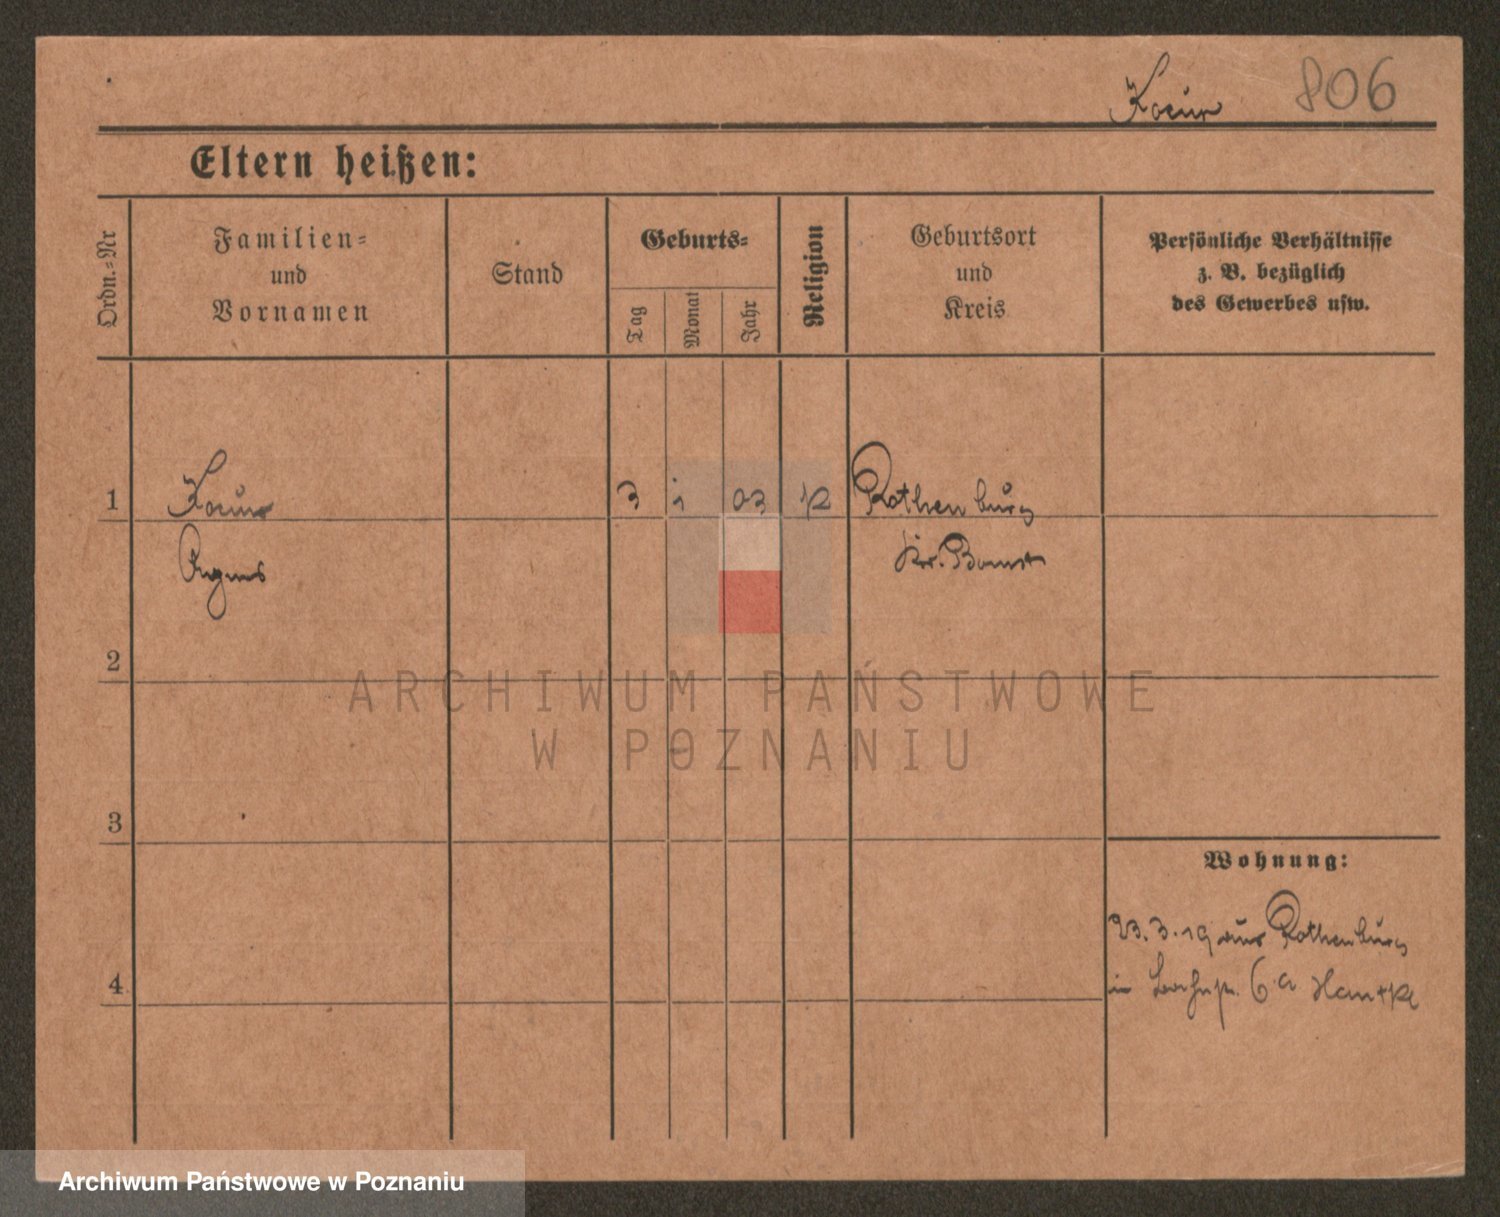 Kocur 806
Eltern heißen:
Ordn.=Nr
Familien=
und
Vornamen
Stand
Geburts=
Tag
Monat
Jahr
Religion
Geburtsort
und
Kreis
Persönliche Verhältnisse
z. B. bezüglich
des Gewerbes usw.
1 Kocur 3 1 03 k Rothenburg
Agnes Kr. Bomst
2
ARCHIWUM PAŃSTWOWE
W POZNANIU
3
Wohnung:
23.3.19 aus Rothenburg
in 6a
4
Archiwum Państwowe w Poznaniu